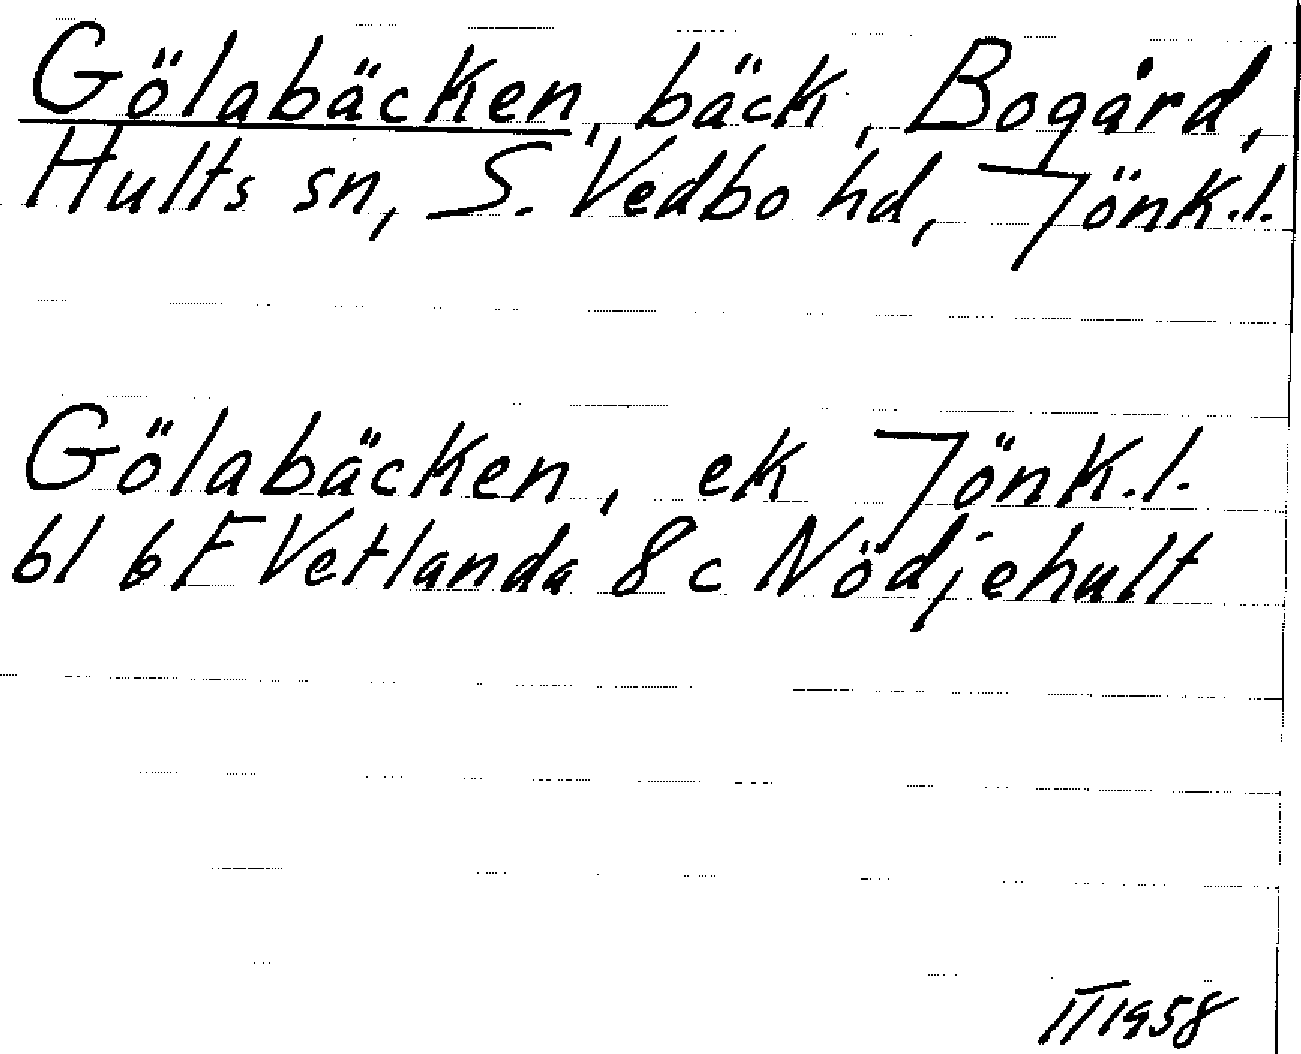 Gölabäcken, bäck, Bogård,
Hults sn, S. Vedbo hd, Jönk.l.
Gölabäcken, ek Jönk.l.
bl 6 F Vetlanda 8 c Nödjehult
II 1958